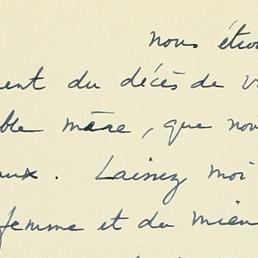 nous étio
ent du décès de v
ble mère, que nou
ux. Laissez moi
femme et du mien